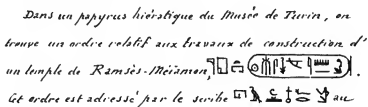 Dans un papyrus hiératique du Musée de Turin, on
trouve un ordre relatif aux travaux de construction d'
un temple de Ramsès-Méïamon,
Cet ordre est adressé par le scribe au